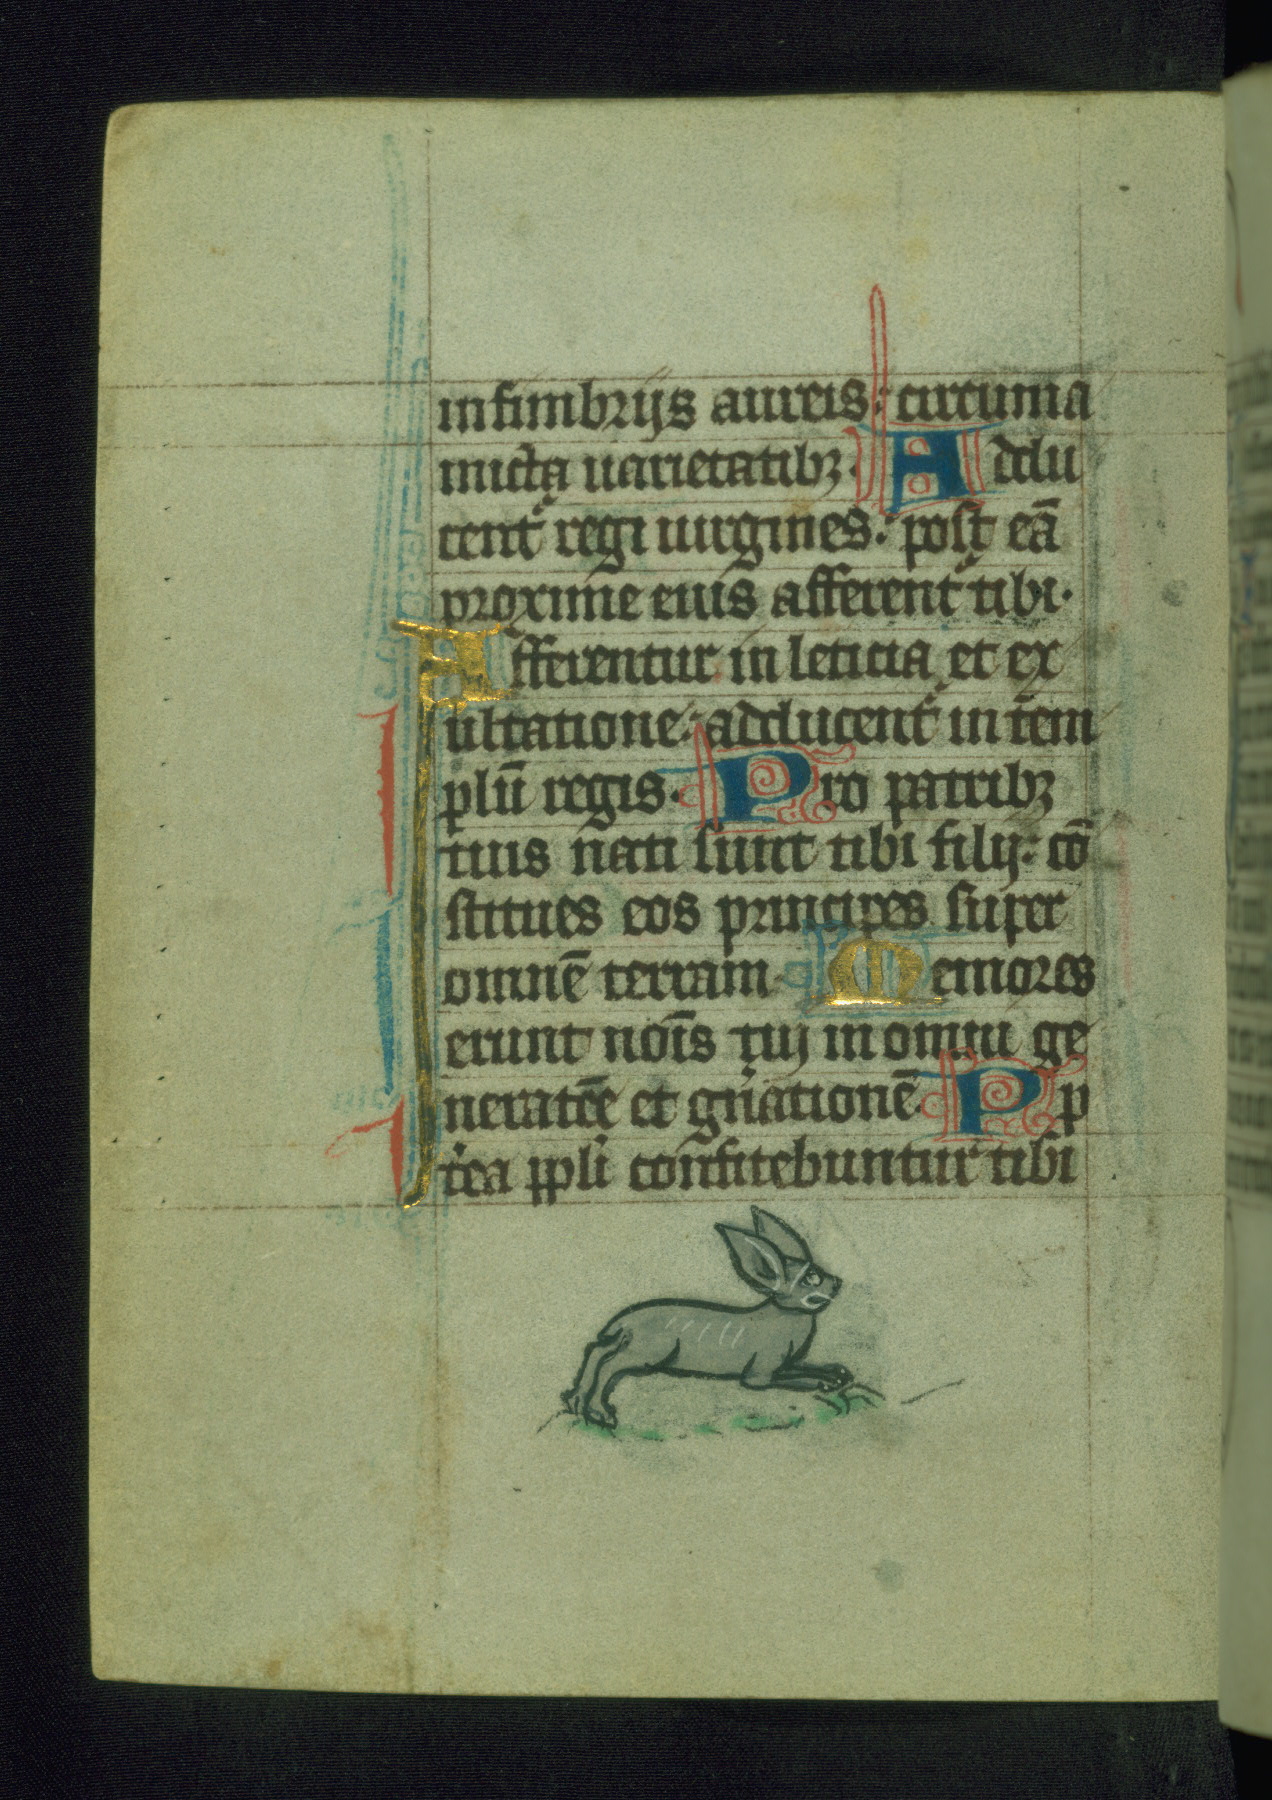 in fimbrijs aureis: circuma
micta uarietatibꝫ. Addu
cent᷑ regi uirgines: post eā
proxime eius afferent᷑ tibi.
Afferentur in leticia et ex
ultatione: adducent᷑ in tem
plū regis. Pro patribꝫ
tuis nati sunt tibi filij: cō
stitues eos principes super
omnē terram. Memores
erunt nois̄ tuj in omni ge
neratōe et gn̄ationē. Pp
t̓ea pp̄li confitebuntur tibi